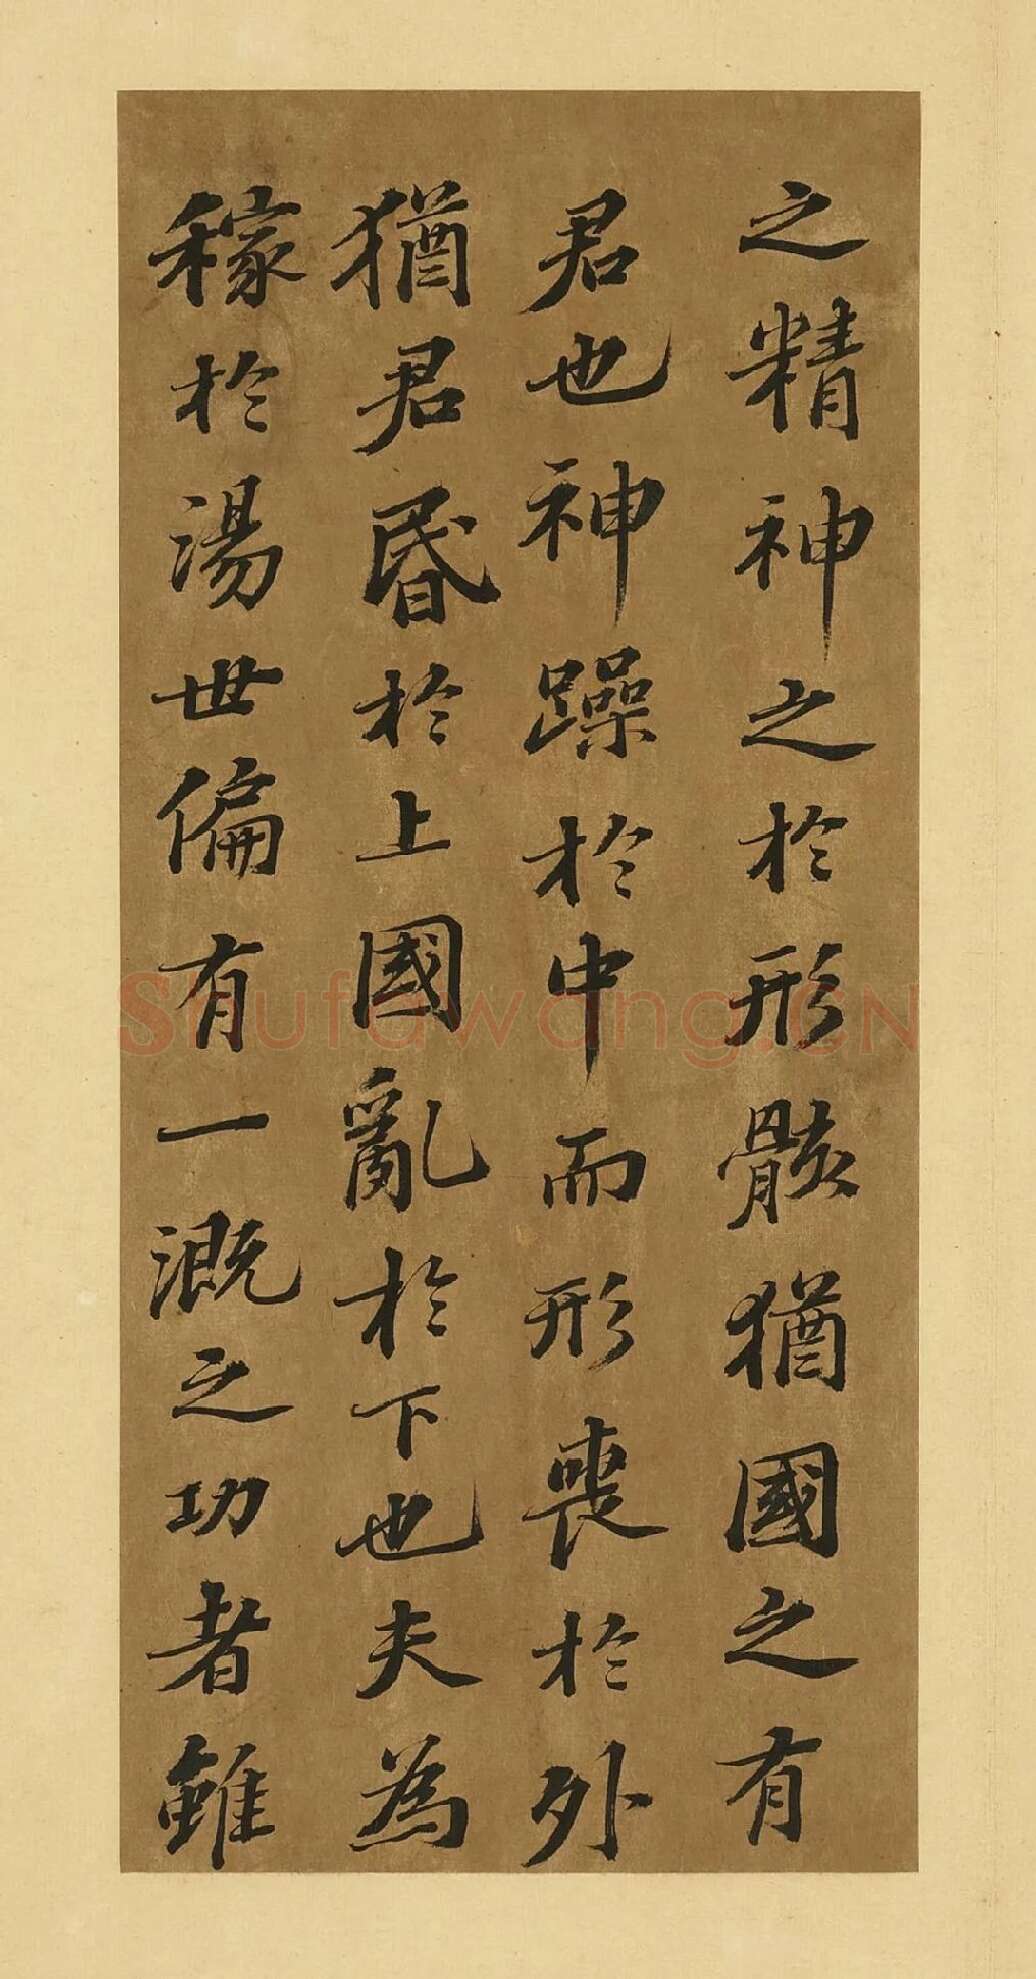 之精神之於形骸猶國之有
君也神躁於中而形喪於外
猶君昏於上國亂於下也夫為
稼於湯世偏有一溉之功者雖
Shufawang.CN